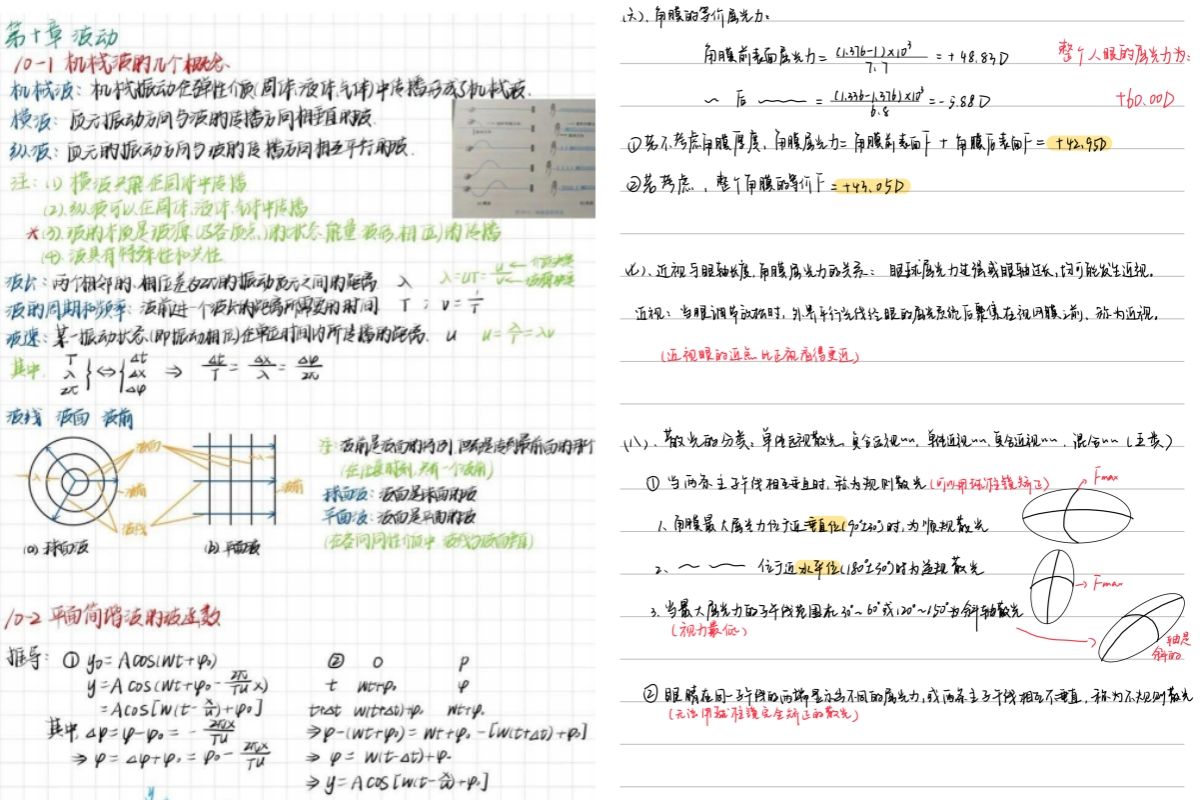 第十章 波动
10-1 机械波的几个概念
机械波：机械振动在弹性介质(固体、液体、气体)中传播形成了机械波.
横波：质元振动方向与波的传播方向相垂直的波.
纵波：质元的振动方向与波的传播方向相互平行的波.
注：(1) 横波只能在固体中传播
(2).纵波可以在固体、液体、气体中传播
*(3).波的本质是波源(及各质点)的状态、能量、波形、相位)的传播
(4).波具有特殊性和共性
波长：两个相邻的、相位差为2π的振动质元之间的距离. λ λ=uT=u/ν
波的周期和频率：波前进一个波长的距离所需要的时间 T ; ν=1/T
波速：某一振动状态(即振动相位)在单位时间内所传播的距离. u u=λ/T=λν
其中, T λ 2π }⇔{ Δt Δx Δφ ⇒ Δt/T=Δx/λ=Δφ/2π
波线 波面 波前
波面
λ
波前
波线
λ
波前
(a) 球面波
(b) 平面波
注：波前是波面的特例,
(在任意时刻,只有一个波前)
球面波：波面是球面的波
平面波：波面是平面的波
(在各向同性介质中,波线与波面垂直)
10-2 平面简谐波的波函数
推导：① y₀=Acos(wt+φ₀)
y=Acos(wt+φ₀-2πx/Tu)
=Acos[w(t-x/u)+φ₀]
其中, Δφ=φ-φ₀=-2πx/Tu
⇒φ=Δφ+φ₀=φ₀-2πx/Tu
② O P
t wt+φ₀ φ
t+Δt w(t+Δt)+φ₀ wt+φ₀
⇒φ-(wt+φ₀)=wt+φ₀-[w(t+Δt)+φ₀]
⇒φ=w(t-Δt)+φ₀
⇒y=Acos[w(t-x/u)+φ₀]
y
(六)、角膜的等价屈光力：
角膜前表面屈光力=(1.376-1)×10³/7.7=+48.83D
~ 后 ~~~=(1.336-1.376)×10³/6.8=-5.88D
整个人眼的屈光力为：
+60.00D
①若不考虑角膜厚度,角膜屈光力=角膜前表面F+角膜后表面F=+42.95D
②若考虑,整个角膜的等价F=+43.05D
(七)、近视与眼轴长度、角膜屈光力的关系：眼球屈光力过强或眼轴过长,均可能发生近视。
近视：当眼调节放松时,外界平行光线经眼的屈光系统后聚集在视网膜之前,称为近视。
(近视眼的近点比正视眼得更近)
(八)、散光的分类：单纯远视散光、复合远视~~、单纯近视~~、复合近视~~、混合~~(五类)
①当两条主子午线相互垂直时,称为规则散光(可以用球柱镜矫正)
Fmax
1.角膜最大屈光力位于近垂直位(90°±30°)时,为顺规散光
2.~~ ~~~ 位于近水平位(180°±30°)时为逆规散光
Fmax
3.当最大屈光力的子午线范围在30°~60°或120°~150°为斜轴散光
(视力最低)
轴是
斜的
②眼睛在同一子午线的两端显示出不同的屈光力,或两条主子午线相互不垂直,称为不规则散光
(无法用球柱镜完全矫正的散光)